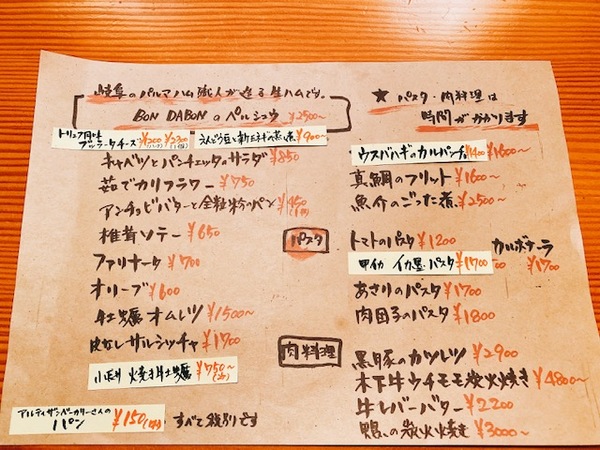 岐阜のパルマハム職人が造る生ハムです。
BON DABONのペルシュウ ¥2500〜
トリュフ風味
ブッラータチーズ ¥200
えんどう豆と新玉ネギの蒸し煮 ¥900〜
キャベツとパンチェッタのサラダ ¥850
茹でカリフラワー ¥750
アンチョビバターと全粒粉のパン ¥450
椎茸ソテー ¥650
ファリナータ ¥700
オリーブ ¥600
牡蠣オムレツ ¥1500〜
皮なしサルシッチャ ¥1700
焼き牡蠣 ¥750〜
アルティザンベーカリーさんの
パン ¥150 すべて税別です
★ パスタ・肉料理は
時間がかかります
ウスバハギのカルパッチョ ¥1600〜
真鯛のフリット ¥1600〜
魚介のごった煮 ¥2500〜
パスタ
トマトのパスタ ¥1200
カルボナーラ
¥1700
甲イカ イカ墨パスタ ¥1700
あさりのパスタ ¥1700
肉団子のパスタ ¥1800
肉料理
黒豚のカツレツ ¥2900
木下牛ウチモモ炭火焼き ¥4800〜
牛レバーバター ¥2200
鴨の炭火焼き ¥3000〜